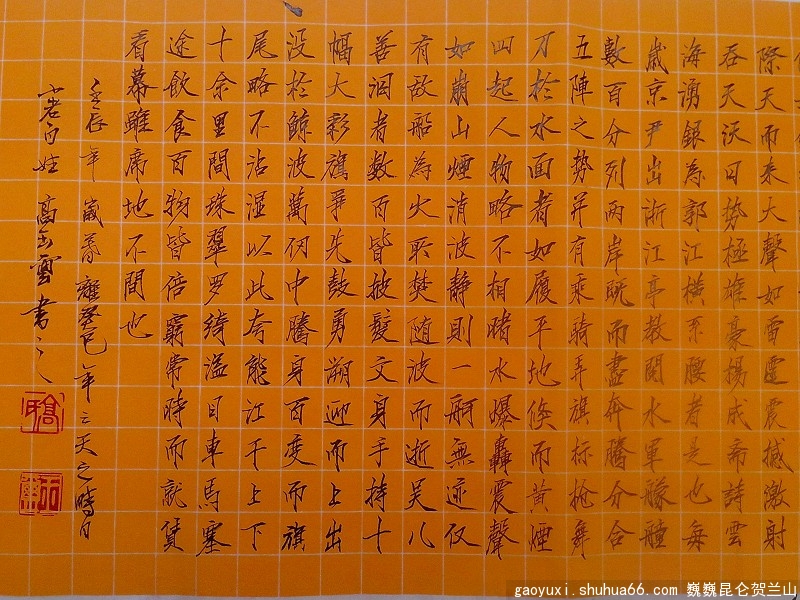 際天而来大聲如雷霆震撼激射
吞天沃日势極雄豪揚成斋詩雲
海湧銀為郭江横系腰者是也每
歲京尹出浙江亭教閱水軍艨艟
數百分列两岸既而盡奔騰分合
五陣之势并有乘騎弄旗标枪舞
刀於水面者如履平地倏而黄煙
四起人物略不相睹水爆轟震聲
如崩山煙消波静則一舸無迹仅
有敌船為火所焚随波而逝吴儿
善泅者数百皆披髮文身手持十
幅大彩旗争先鼓勇溯迎而上出
没於鲸波萬仞中騰身百变而旗
尾略不沾湿以此夸能江干上下
十余里間珠翠罗绮溢目車馬塞
途飲食百物皆倍窮常時而就赁
看幕雖席地不間也
壬辰年 歲暮 離癸巳年三天之時日
小老百姓 高 雲書之
gaoyuxi.shuhua66.com 巍巍昆仑贺兰山